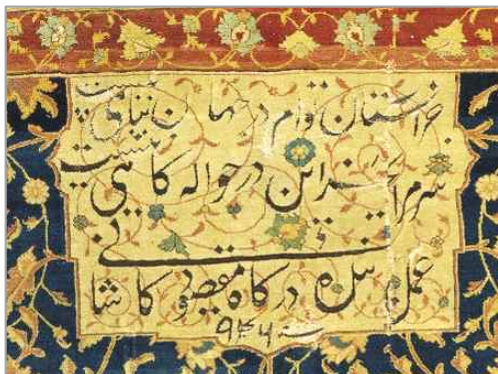 جز آستان توام در جهان پناهی نیست
سر مرا بجز این در حواله کاهی نیست
عمل بنده درکاه مقصود کاشانی
سنه ۹۴۶